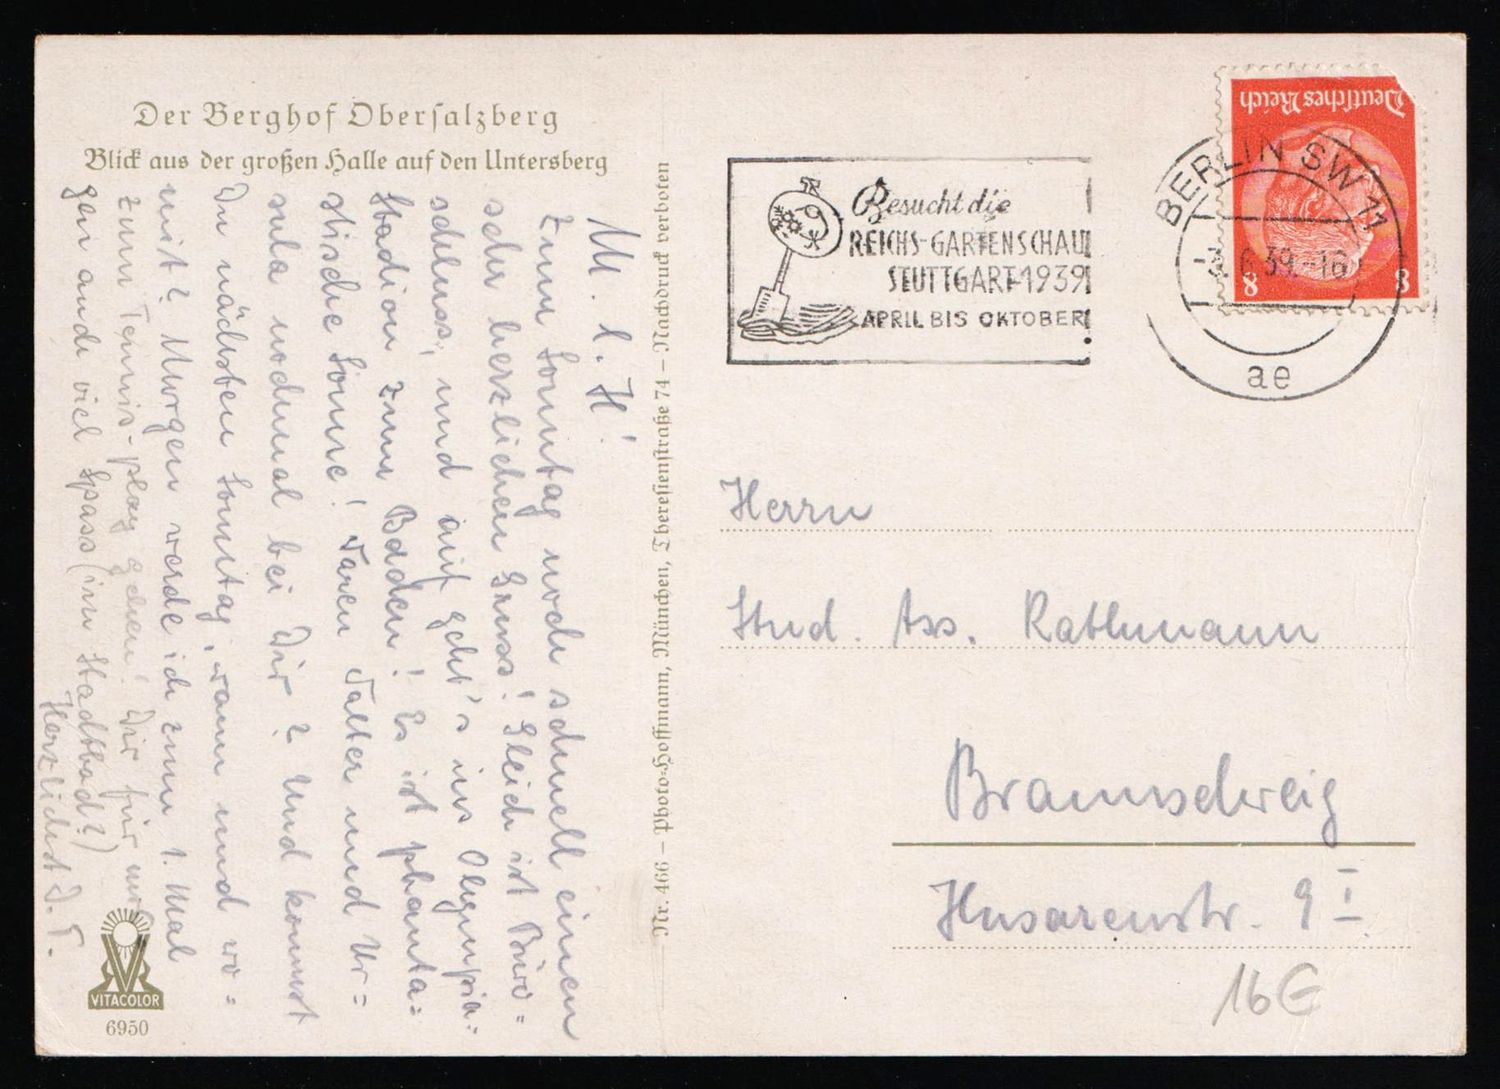 Der Berghof Obersalzberg
Blick aus der großen Halle auf den Untersberg
M. l. H!
Zum Sonntag noch schnell einen
sehr herzlichen Gruss! Gleich ist Büro-
schluss, und auf geht's ins Olympia-
stadion zum Baden! Es ist phanta=
stische Sonne! Waren Walter und Ur=
sula nochmal bei Dir? Und kommst
Du nächsten Sonntag, wann und wo=
mit? Morgen werde ich zum 1. Mal
zum Tennis-play gehen! Dir für
gen auch viel Spass (im Stadtbad?)
Herzlichst D. T.
VITACOLOR
6950
Nr. 466 – Photo-Hoffmann, München, Theresienstraße 74 – Nachdruck verboten
Besucht die
REICHS-GARTENSCHAU
STUTTGART-1939
APRIL BIS OKTOBER
Deutsches Reich
8 8
BERLIN SW 11
6.39.-16
ae
Herrn
Stud. Ass. Rathmann
Braunschweig
Husarenstr. 9 I
16 €